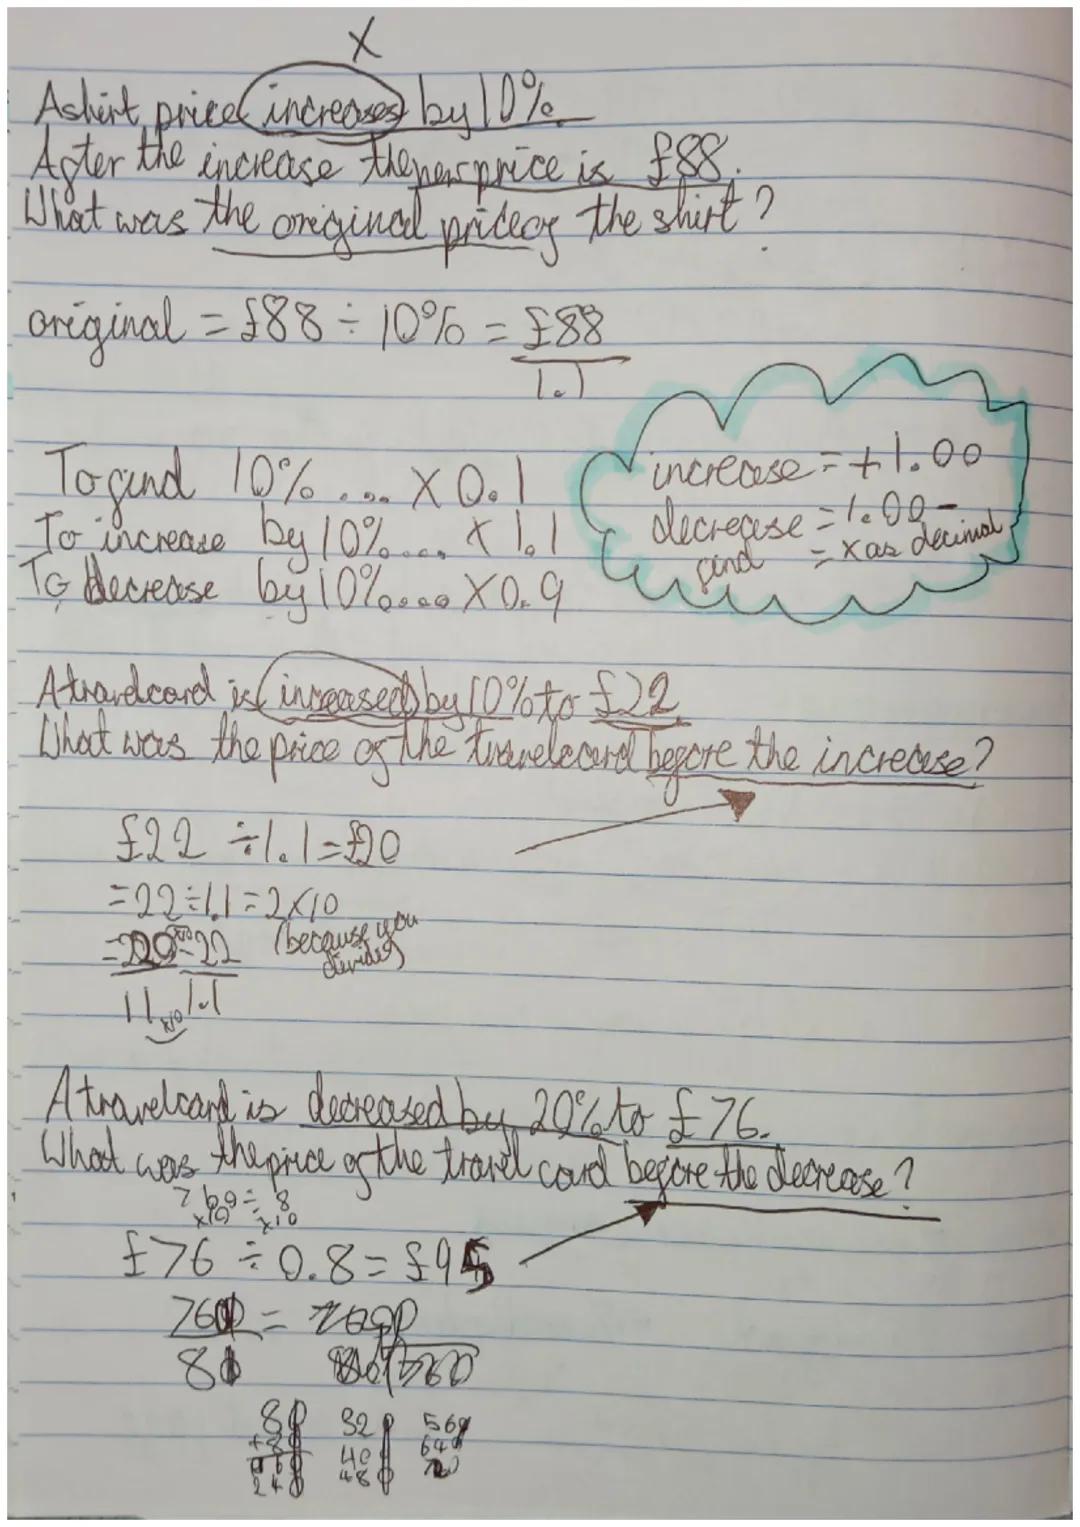 X
A shirt price increases by 10%.
After the increase the new price is £88.
What was the original price of the shirt?
original = £88 ÷ 10% = £88
1.1
To find 10% .... X 0.1
To increase by 10%.... X 1.1
To decrease by 10%.... X 0.9
increase = + 1.00
decrease = 1.00 -
find = x as decimal
A travelcard is increased by 10% to £22
What was the price of the travelcard before the increase?
£22 ÷ 1.1 = £20
= 22 ÷ 1.1 = 2 x 10
(because you
divides)
= 220 = 22
11 x10 1.1
A travelcard is decreased by 20% to £76.
What was the price of the travel card before the decrease?
760 ÷ 8
x10 x10
£76 ÷ 0.8 = £95
760 =
80
80 320 560
+80 400 640
160 480 720
240